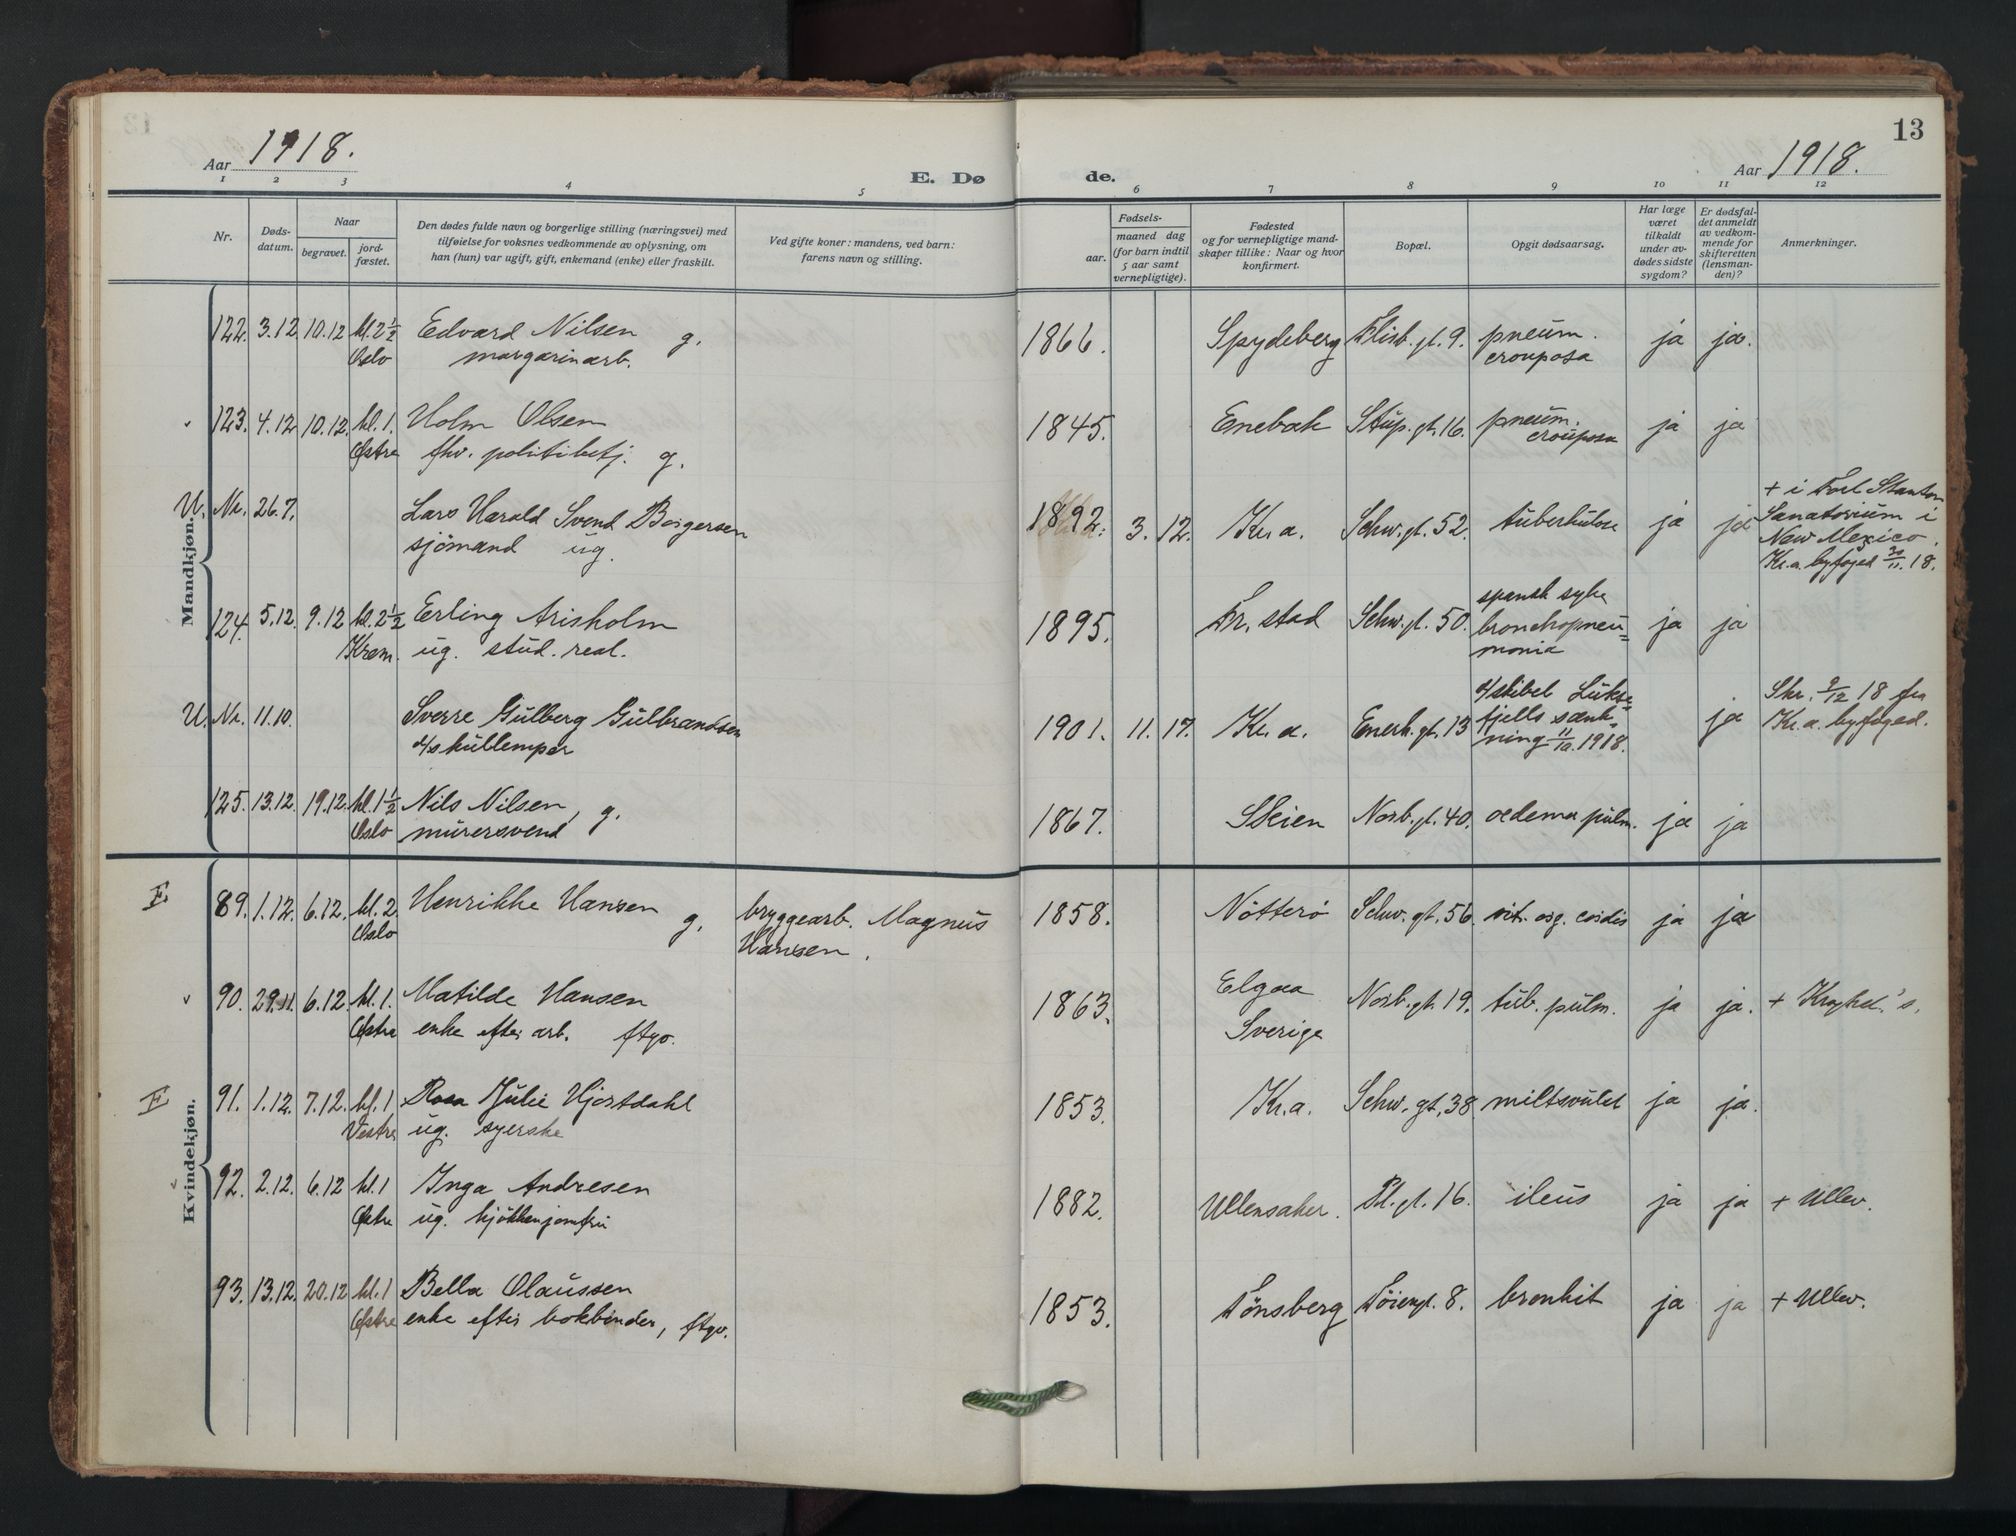 Aar 1918.
E. Dø
de.
Aar 1918.
13
1 2 3 4 5 6 7 8 9 10 11 12
Nr.
Døds-
datum.
Naar
begravet.
jord-
fæstet.
Den dødes fulde navn og borgerlige stilling (næringsvei) med
tilføielse for voksnes vedkommende av oplysning, om
han (hun) var ugift, gift, enkemand (enke) eller fraskilt.
Ved gifte koner: mandens, ved barn:
farens navn og stilling.
Fødsels-
aar.
maaned dag
(for barn indtil
5 aar samt
vernepligtige).
Fødested
og for vernepligtige mand-
skaper tillike: Naar og hvor
konfirmert.
Bopæl.
Opgit dødsaarsag.
Har læge
været
tilkaldt
under av-
dødes sidste
sygdom?
Er dødsfal-
det anmeldt
av vedkom-
mende for
skifteretten
(lensman-
den)?
Anmerkninger.
Mandkjøn.
122. 3.12. 10.12 kl. 2 1/2 Edvard Nilsen g. 1866. Spydeberg Elisb. gt. 9. pneum. ja ja.
Oslo margarinarb. crouposa
123. 4.12 10.12. kl. 1. Holm Olsen 1845. Enebak Stup. gt. 16. pneum. ja ja
Østre fhv. politibetj. g. crouposa
U. Nr. 26.7. Lars Harald Svend Borgersen 1892. 3. 12. Kr.a. Schw. gt. 52. tuberkulose ja ja + i Fort Stanton
sjömand ug. Sanatorium i
New Mexico.
Kr.a. byfoged 30/11. 18.
124. 5.12. 9.12 kl. 2 1/2 Erling Arisholm 1895. Fr. stad Schw. gt. 50. spansk syke ja ja
Krem. ug. stud. real. bronchopneu=
monia
U. Nr. 11.10. Sverre Gulberg Gulbrandsen 1901. 11. 17. Kr.a. Enerh. gt. 13 d/s ja Skr. 9/12 18 fra
d/s kullemper fjells sænk- Kr.a. byfoged.
ning 11/10. 1918.
125. 13.12. 19.12. kl. 1 1/2 Nils Nilsen, g. 1867. Skien Norb. gt. 40. oedema pulm. ja ja
Oslo murersvend
Kvindekjøn.
E 89. 1.12. 6.12. kl. 2. Henrikke Hansen g. bryggearb. Magnus 1858. Nötterö Schw. gt. 56. vit. org. cordis ja ja
Oslo Hansen.
90. 29.11. 6.12. kl. 1. Matilde Hansen 1863. Elgaa Norb. gt. 19. tub. pulm. ja ja. + Krohed.'s.
Østre enke efter arb. ftgv. Sverige
E 91. 1.12. 7.12. kl. 1 Rosa Julie Hjortdahl 1853. Kr.a. Schw. gt. 38 miltsvulst ja ja.
Vestre ug. syerske
92. 2.12. 6.12 kl. 1 Inga Andresen 1882. Ullensaker. Pl. gt. 16. ileus ja ja + Ullev.
Østre ug. kjökkenjomfru
93. 13.12. 20.12 kl. 1 Bella Olaussen 1853. Tönsberg Töiengt. 8. bronkit ja ja + Ullev.
Østre enke efter bokbinder, ftgv.